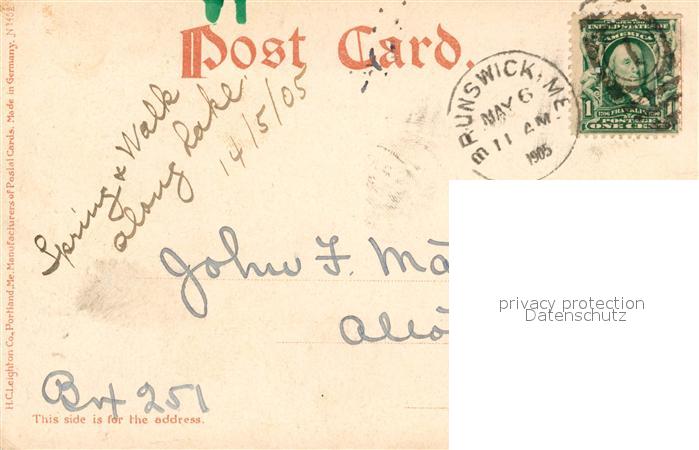 Post Card.
BRUNSWICK, ME.
MAY 6
11 AM
1905
UNITED STATES OF
AMERICA
1 FRANKLIN 1
POSTAGE
ONE CENT
Spring & Walk
along Lake
14/5/05
John F. Ma
Box 251
This side is for the address.
H.C. Leighton Co., Portland, Me. Manufacturers of Postal Cards. Made in Germany. N
privacy protection
Datenschutz